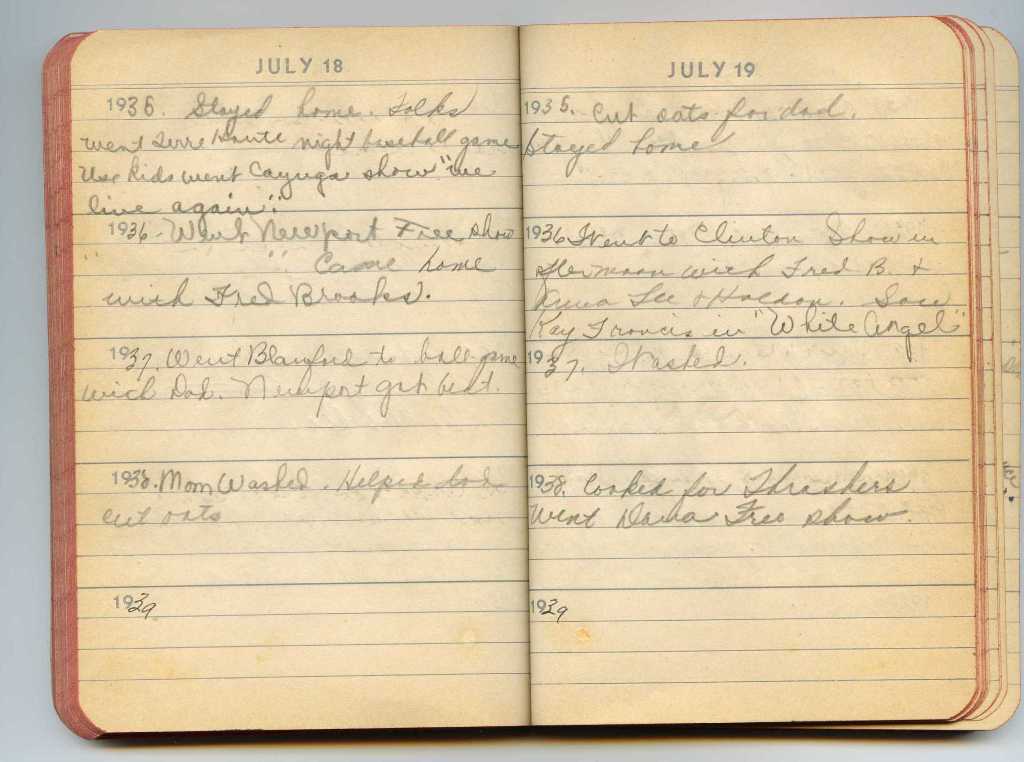 JULY 18
1935. Stayed home. Folks
went Terre Haute night baseball game
Us kids went Cayuga show "We
live again".
1936 - Went Newport Free show
" " Came home
with Fred Brooks.
1937. Went Blanford to ball game
with Dad. Newport got beat.
1938. Mom Washed. Helped Dad
cut oats
1939
JULY 19
1935. Cut oats for dad.
Stayed home
1936 Went to Clinton Show in
afternoon with Fred B. &
Lee & Holdon. Saw
Kay Francis in "White Angel"
1937. Washed.
1938. Cooked for Thrashers
Went Dana Free show.
1939